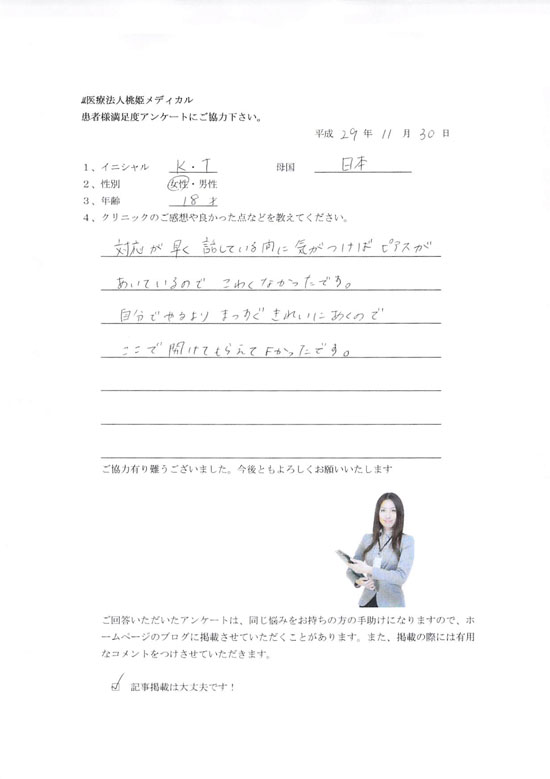 医療法人桃姫メディカル
患者様満足度アンケートにご協力下さい。
平成 29 年 11 月 30 日
1、イニシャル K・T 母国 日本
2、性別 女性・男性
3、年齢 18才
4、クリニックのご感想や良かった点などを教えてください。
対応が早く 話している間に 気がつけば ピアスが
あいているので こわくなかったです。
自分でやるより まっすぐ きれいにあくので
ここで 開けてもらえて よかったです。
ご協力有り難うございました。今後ともよろしくお願いいたします
ご回答いただいたアンケートは、同じ悩みをお持ちの方の手助けになりますので、ホ
ームページのブログに掲載させていただくことがあります。また、掲載の際には有用
なコメントをつけさせていただきます。
☑ 記事掲載は大丈夫です！